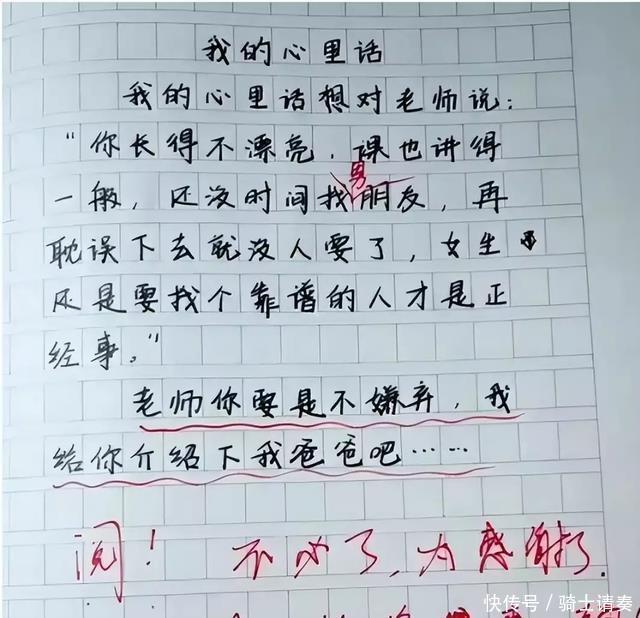 我的心里话
我的心里话想对老师说：
“你长得不漂亮，课也讲得
男
一般，还没时间找朋友，再
耽误下去就没人要了，女生
还是要找个靠谱的人才是正
经事。”
老师你要是不嫌弃，我
给你介绍下我爸爸吧……
阅！不必了，太感谢了。
快传号／骑士请奏